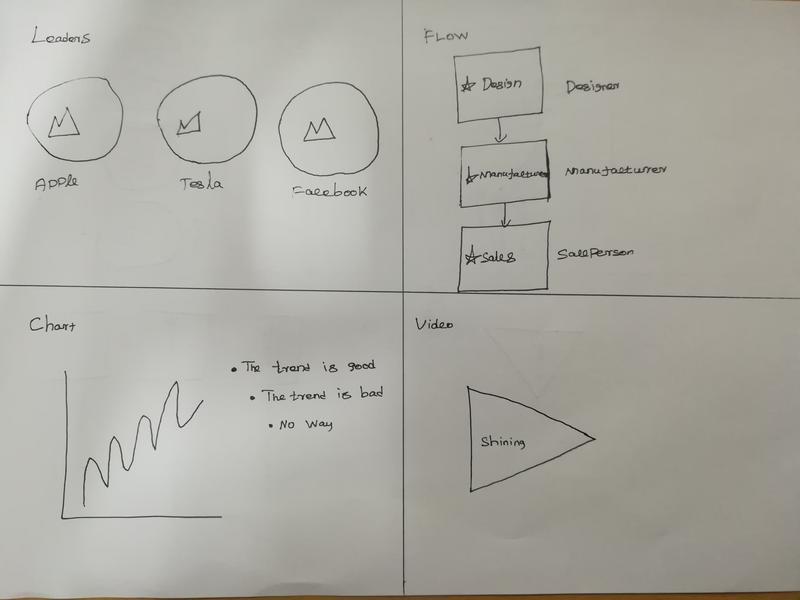 Leaders
Apple
Tesla
Facebook
FLOW
Design
Designer
Manufacturer
Manufacturer
Sales
SalePerson
Chart
The trend is good
The trend is bad
No Way
Video
Shining